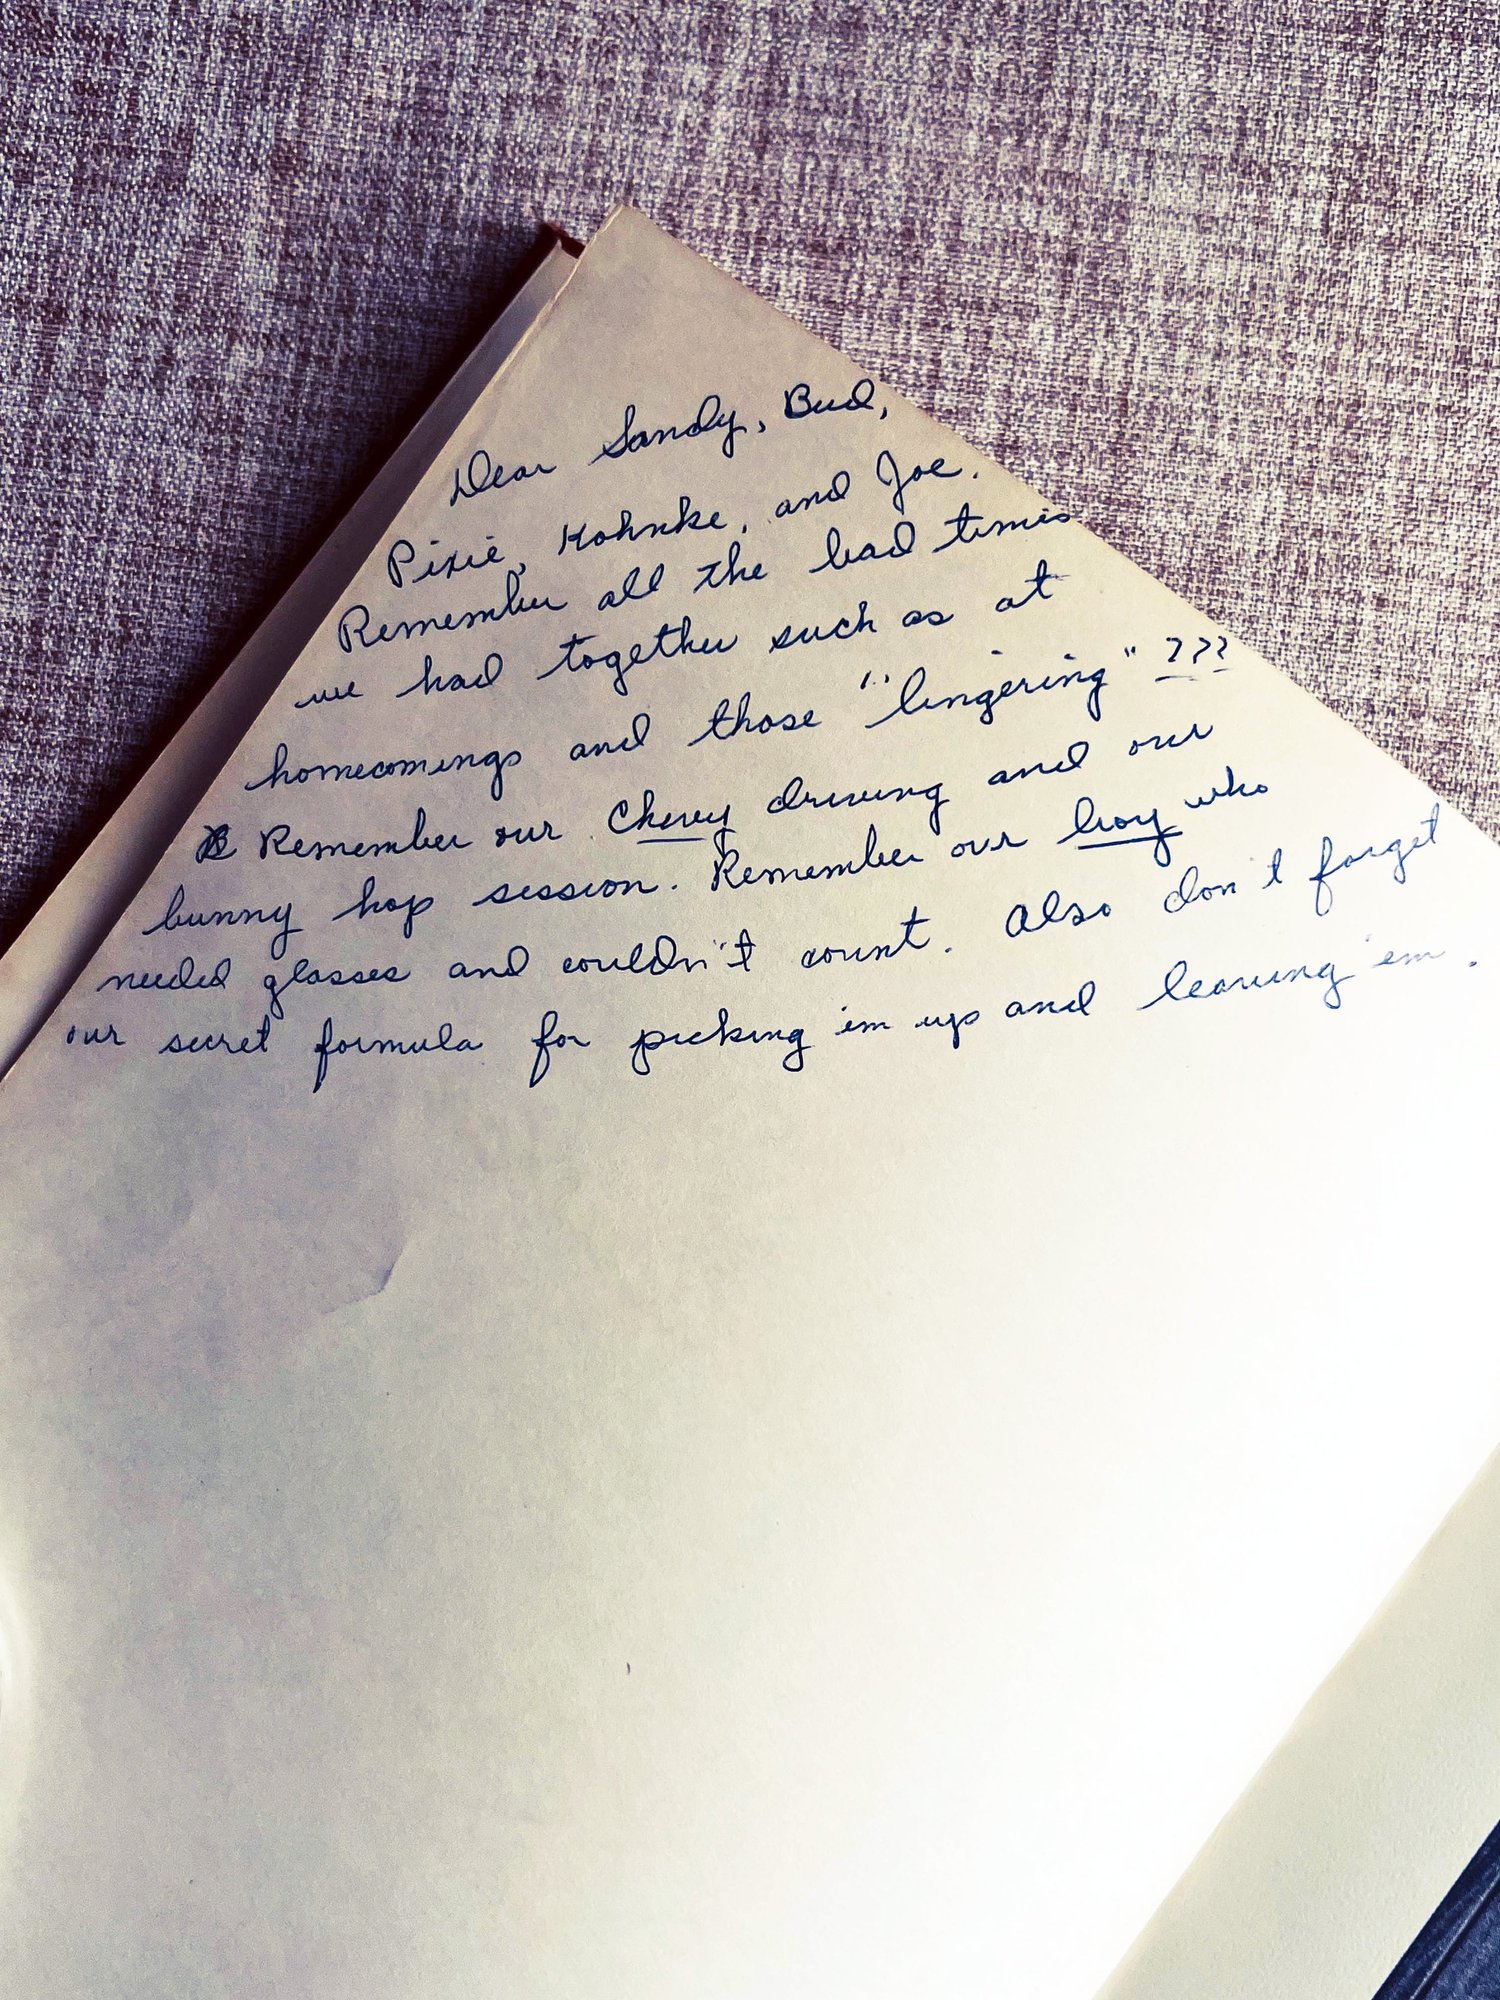 Dear Sandy, Bud,
Pixie, Kohnke, and Joe.
Remember all the bad times
we had together such as at
homecomings and those "lingering" ???
Remember our Chevy driving and our
bunny hop session. Remember our boy who
needed glasses and couldn't count. Also don't forget
our secret formula for picking 'em up and leaving 'em.